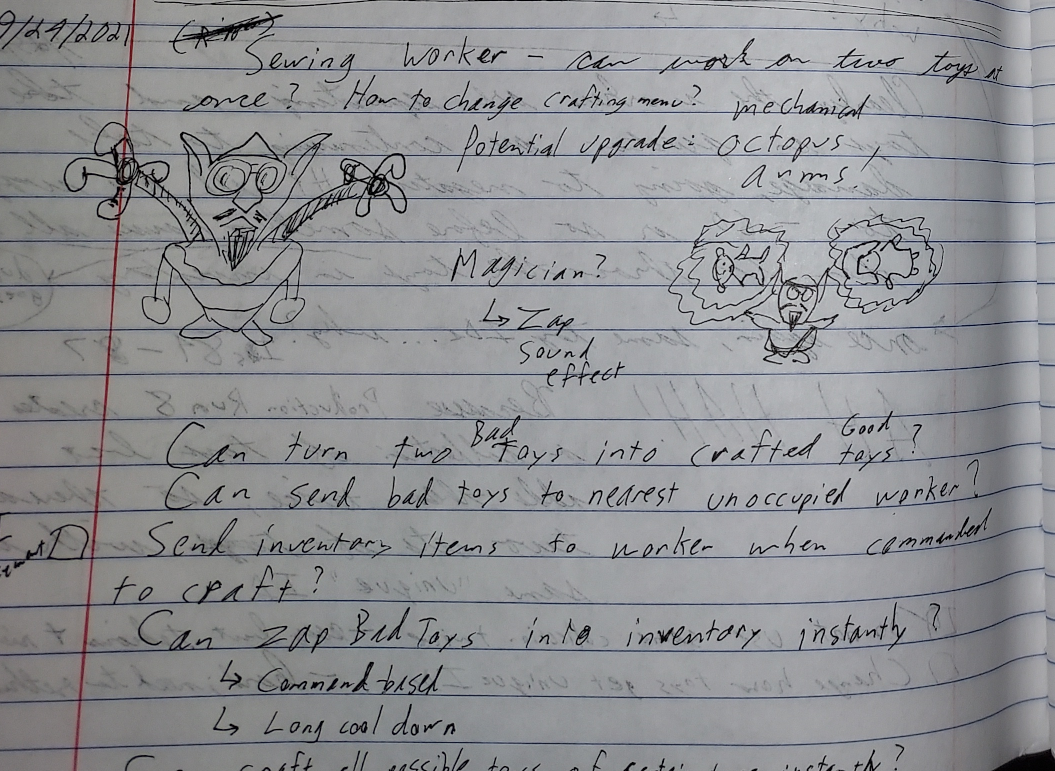 9/29/2021
Sewing worker - can work on two toys at
once? How to change crafting menu?
Potential upgrade: mechanical
octopus
arms!
Magician?
↳ Zap
sound
effect
Can turn two Bad toys into crafted Good toys?
Can send bad toys to nearest unoccupied worker?
Send inventory items to worker when commanded
to craft?
Can zap Bad Toys into inventory instantly?
↳ Command based
↳ Long cool down
craft all possible toys of